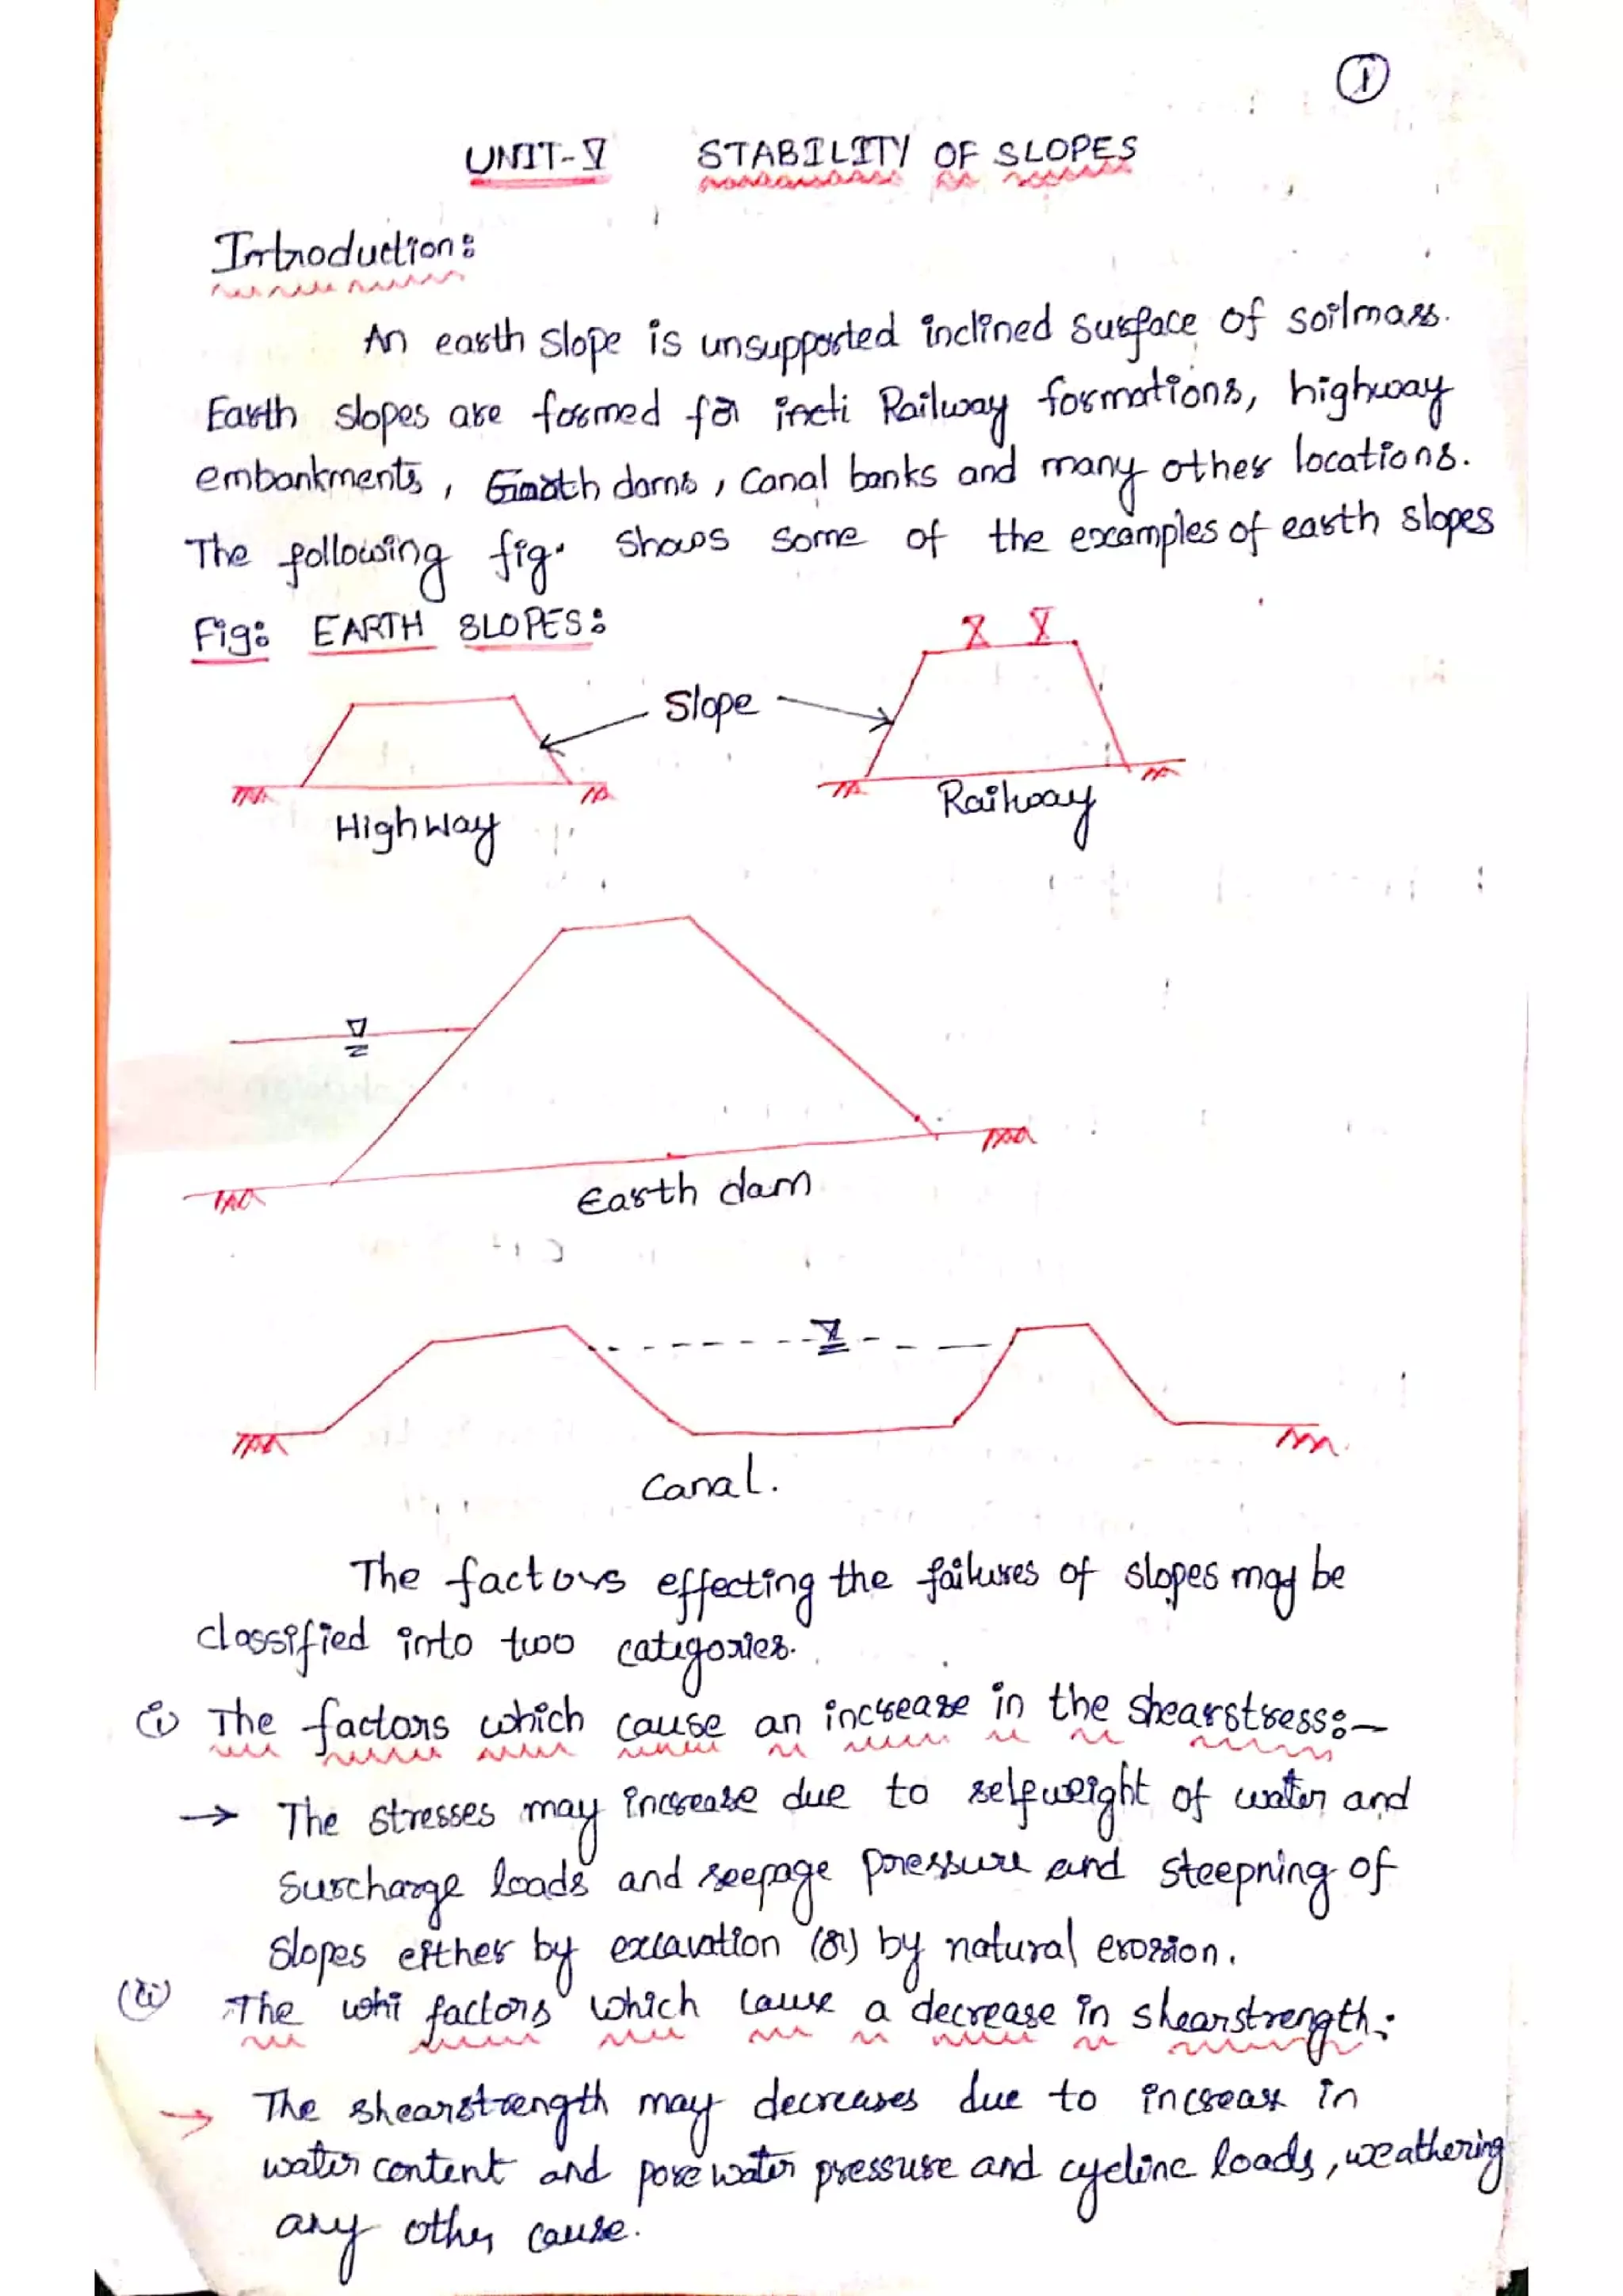 ①
UNIT-V STABILITY OF SLOPES
Introduction:
An earth slope is unsupported inclined surface of soilmass.
Earth slopes are formed for Railway formations, highway
embankments, Earth dams, canal banks and many other locations.
The following fig. shows some of the examples of earth slopes
Fig: EARTH SLOPES:
Slope
Highway
Railway
Earth dam
Canal.
The factors effecting the failures of slopes may be
classified into two categories.
(i) The factors which cause an increase in the shearstress:-
→ The stresses may increase due to selfweight of water and
surcharge loads and seepage pressure and steepning of
slopes either by excavation (or) by natural erosion.
(ii) The whi factors which cause a decrease in shearstrength:
→ The shearstrength may decreases due to increase in
water content and pore water pressure and cyclinc loads, weathering
any other cause.